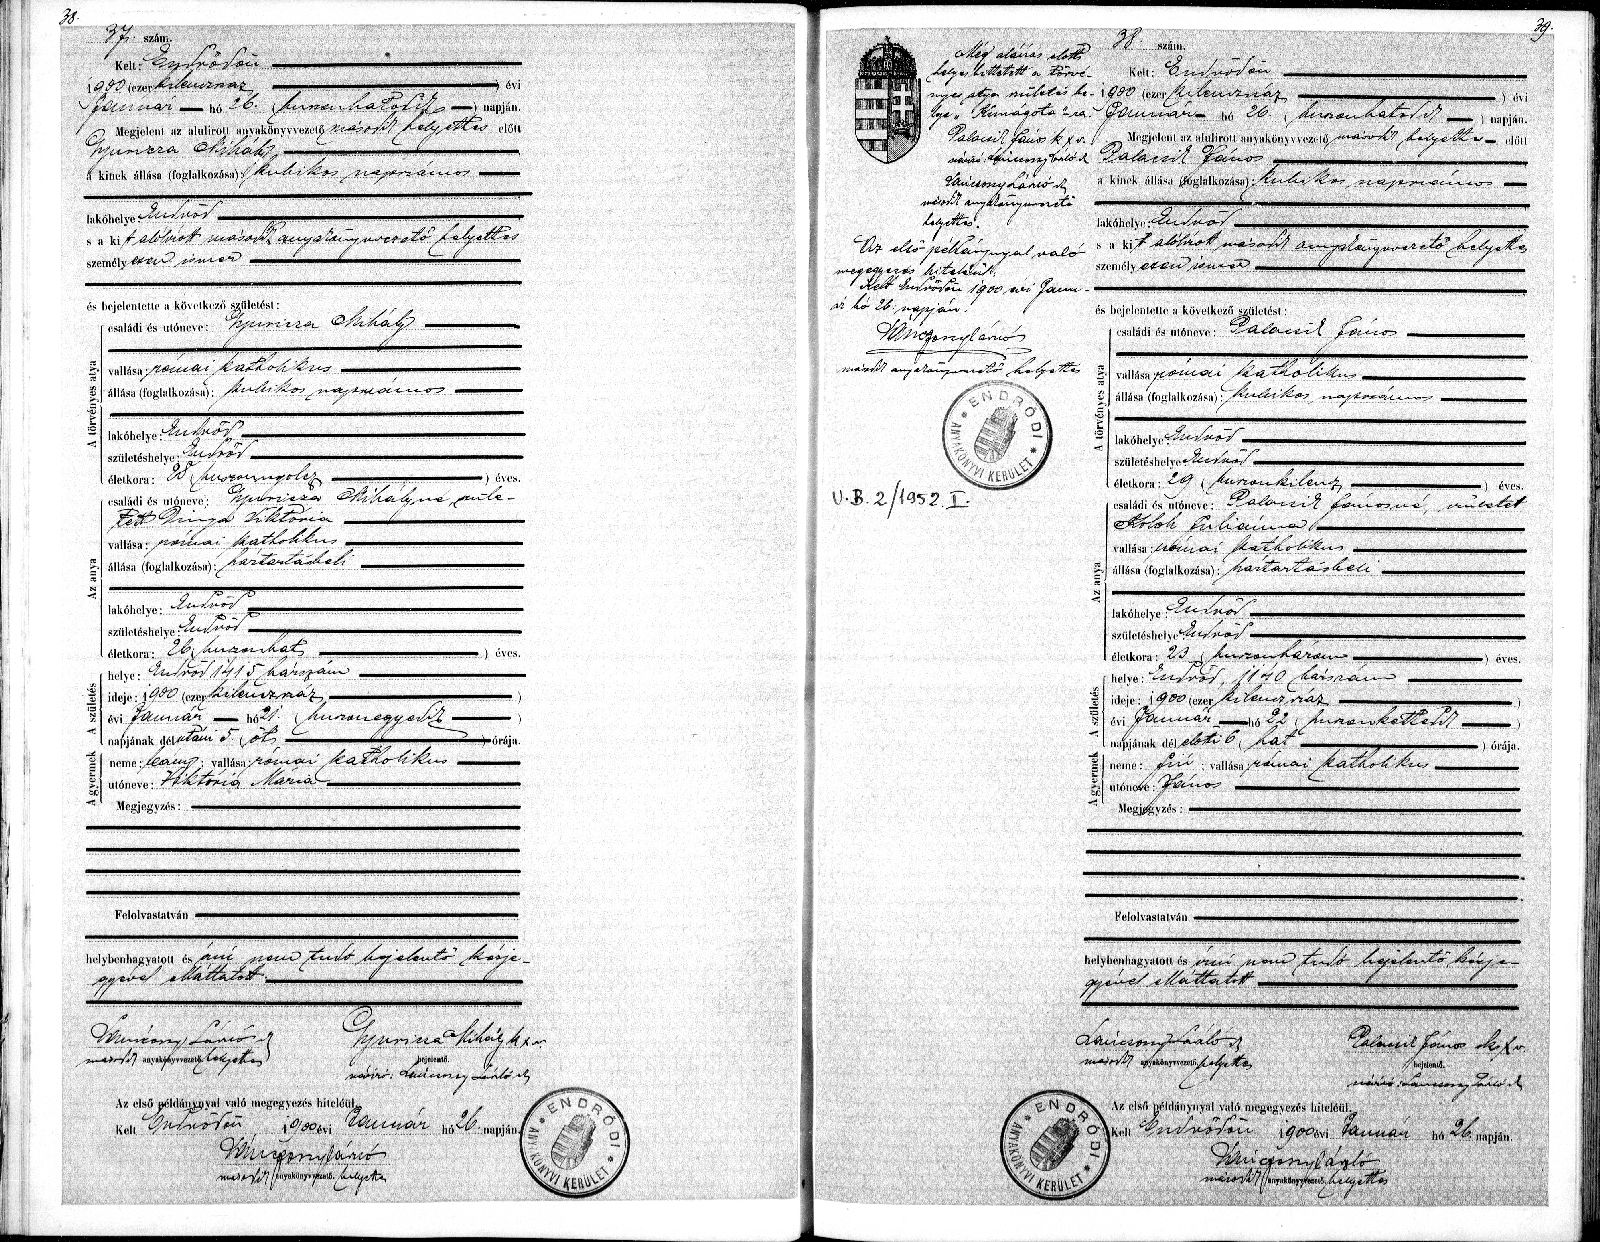 38.
37. szám.
Kelt: Endrődön
1900 (ezerkilenczszáz) évi
Január hó 26. (huszonhatodik) napján.
Megjelent az alulirott anyakönyvvezető második helyettes előtt
Gyuricza Mihály
a kinek állása (foglalkozása): kubikos napszámos
lakóhelye Endrőd
s a kit alólirott második anyakönyvvezető helyettes
személyesen ismer
és bejelentette a következő születést:
A törvényes atya
családi és utóneve: Gyuricza Mihály
vallása: római katholikus
állása (foglalkozása): kubikos napszámos
lakóhelye: Endrőd
születéshelye: Endrőd
életkora: 28 (huszonnyolcz) éves.
Az anya
családi és utóneve: Gyuricza Mihályné szüle-
tett Dinya Viktória
vallása: római katholikus
állása (foglalkozása): háztartásbeli
lakóhelye: Endrőd
születéshelye: Endrőd
életkora: 26 (huszonhat) éves.
A születés
helye: Endrőd 1415 házszám
ideje: 1900 (ezer kilenczszáz)
évi Január hó 21. (huszonegyedik)
napjának délutáni 5 (öt) órája.
A gyermek
neme: leány; vallása: római katholikus
utóneve: Viktória Mária
Megjegyzés:
Felolvastatván
helybenhagyatott és írni nem tudó bejelentő kézje-
gyével elláttatott.
második anyakönyvvezető helyettes
Gyuricza Mihály k x v.
bejelentő.
Az első példánynyal való megegyezés hiteléül.
Kelt Endrődön 1900 évi Január hó 26. napján.
második anyakönyvvezető helyettes
ENDRŐDI
ANYAKÖNYVI KERÜLET
39.
Még aláirás előtt
helyesbittetett a törvé-
nyes atya születés he-
lye "Kunágota"-ra.
Palacsik János k x v.
második anyakönyvvezető
helyettes.
Az első példánynyal való
megegyezés hiteléül.
Kelt Endrődön 1900 évi Janu-
ár hó 26. napján.
második anyakönyvvezető helyettes
ENDRŐDI
ANYAKÖNYVI KERÜLET
U.B. 2/1952. I.
38 szám.
Kelt: Endrődön
1900 (ezer kilenczszáz) évi
Január hó 26. (huszonhatodik) napján.
Megjelent az alulirott anyakönyvvezető második helyettes előtt
Palacsik János
a kinek állása (foglalkozása): kubikos, napszámos
lakóhelye: Endrőd
s a kit alólirott második anyakönyvvezető helyettes
személyesen ismer
és bejelentette a következő születést:
A törvényes atya
családi és utóneve: Palacsik János
vallása: római katholikus
állása (foglalkozása): kubikos, napszámos
lakóhelye: Endrőd
születéshelye: Endrőd
életkora: 29 (huszonkilencz) éves.
Az anya
családi és utóneve: Palacsik Jánosné, született
Juliánna
vallása: római katholikus
állása (foglalkozása): háztartásbeli
lakóhelye: Endrőd
születéshelye: Endrőd
életkora: 23 (huszonhárom) éves.
A születés
helye: Endrőd, 1140 házszám
ideje: 1900 (ezer kilenczszáz)
évi Január hó 22 (huszonkettedik)
napjának dél előtti 6 (hat) órája.
A gyermek
neme: fiú; vallása: római katholikus
utóneve: János
Megjegyzés:
Felolvastatván
helybenhagyatott és írni nem tudó bejelentő kézje-
gyével elláttatott
második anyakönyvvezető helyettes
Palacsik János k x v.
bejelentő.
Az első példánynyal való megegyezés hiteléül.
Kelt Endrődön 1900 évi Január hó 26. napján.
második anyakönyvvezető helyettes
ENDRŐDI
ANYAKÖNYVI KERÜLET